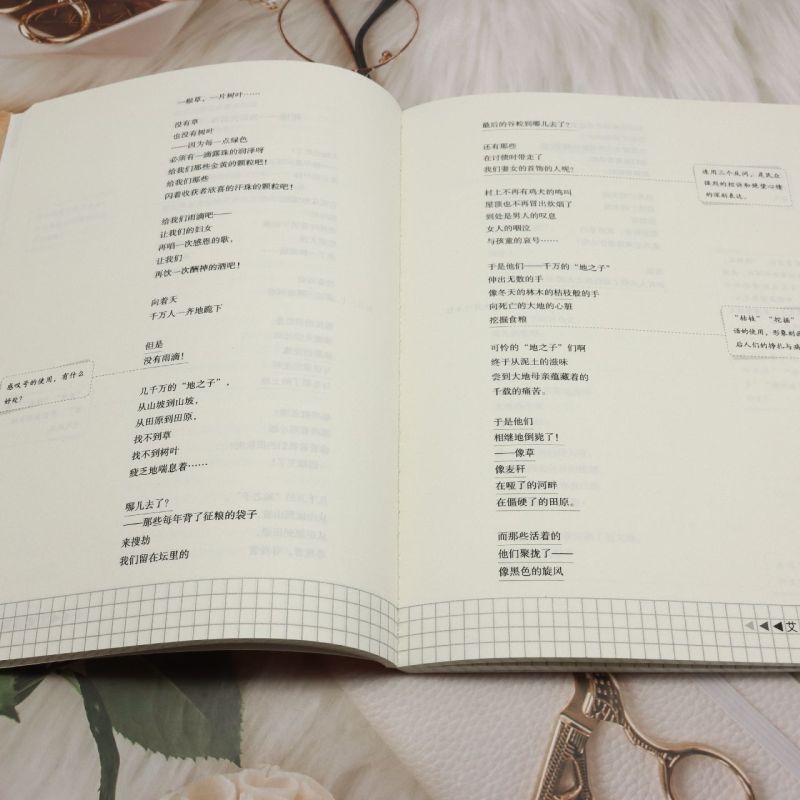 一根草，一片树叶……
没有草
也没有树叶
——因为每一点绿色
必须有一滴露珠的润泽呀
给我们那些金黄的颗粒吧！
给我们那些
闪着收获者欣喜的汗珠的颗粒吧！
给我们雨滴吧——
让我们的妇女
再唱一次感恩的歌，
让我们
再饮一次酬神的酒吧！
向着天
千万人一齐地跪下
但是
没有雨滴！
感叹号的使用，有什么
好处？
几千万的“地之子”，
从山坡到山坡，
从田原到田原，
找不到草
找不到树叶
疲乏地喘息着……
哪儿去了？
——那些每年背了征粮的袋子
来搜劫
我们留在坛里的
最后的谷粒到哪儿去了？
还有那些
在讨债时带走了
我们妻女的首饰的人呢？
连用三个反问，是民众
强烈的控诉和绝望心情
的深刻表达。
村上不再有鸡犬的鸣叫
屋顶也不再冒出炊烟了
到处是男人的叹息
女人的咽泣
与孩童的哀号……
于是他们——千万的“地之子”
伸出无数的手
像冬天的林木的枯枝般的手
向死亡的大地的心脏
挖掘食粮
“枯枝”“挖掘”
话的使用，形象刻画
后人们的挣扎与痛
可怜的“地之子”们啊
终于从泥土的滋味
尝到大地母亲蕴藏着的
千载的痛苦。
于是他们
相继地倒毙了！
——像草
像麦秆
在哑了的河畔
在僵硬了的田原。
而那些活着的
他们聚拢了——
像黑色的旋风
艾